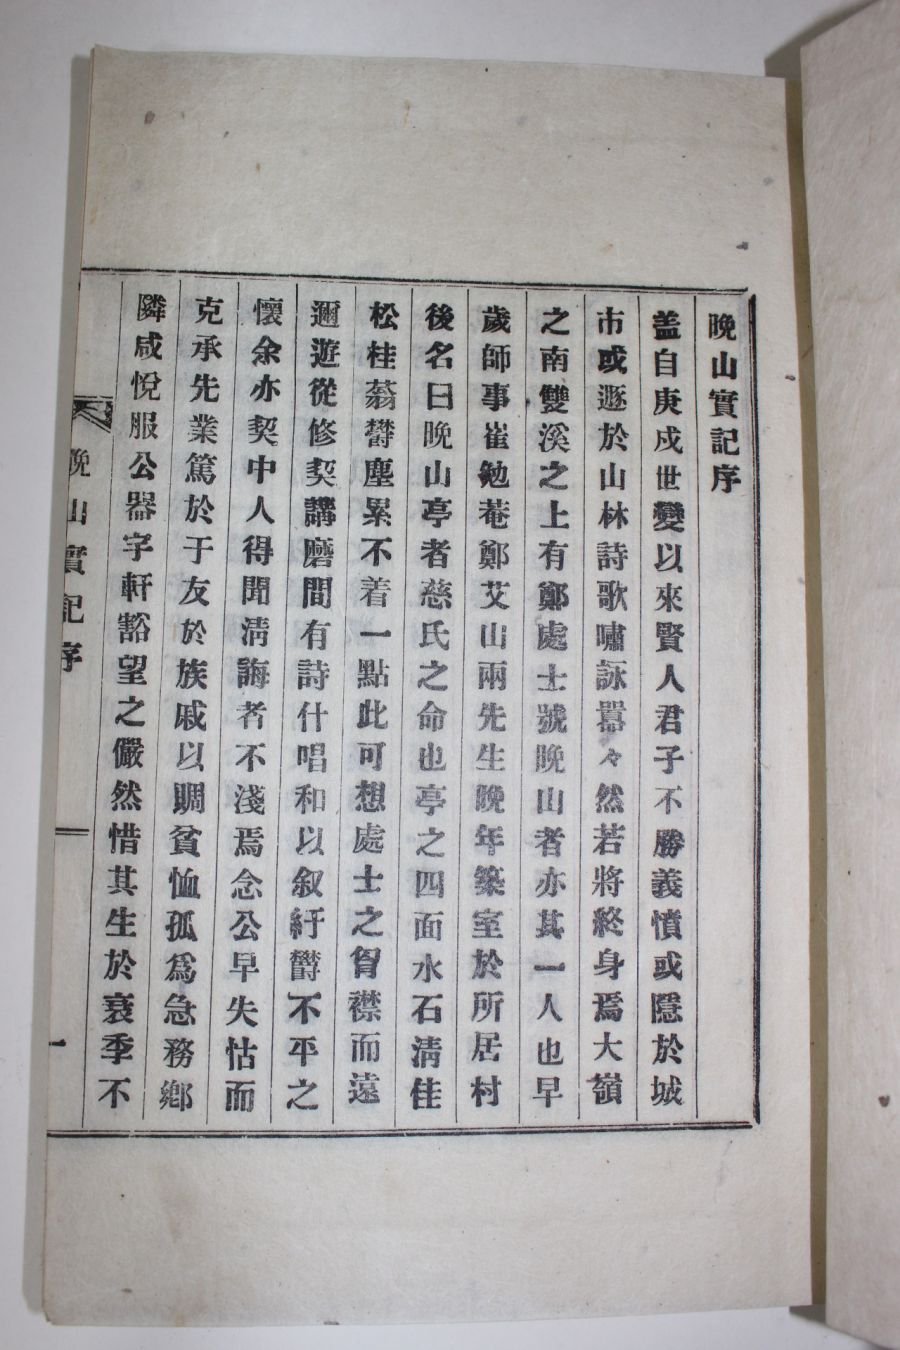 晩山實記序
盖自庚戌世變以來賢人君子不勝義憤或隱於城
市或遯於山林詩歌嘯詠囂々然若將終身焉大嶺
之南雙溪之上有鄭處士號晩山者亦其一人也早
歲師事崔勉菴鄭艾山兩先生晩年築室於所居村
後名曰晩山亭者慈氏之命也亭之四面水石清佳
松桂蓊欝塵累不着一點此可想處士之胷襟而遠
邇遊從修契講磨間有詩什唱和以叙紆欝不平之
懷余亦契中人得聞淸誨者不淺焉念公早失怙而
克承先業篤於于友於族戚以賙貧恤孤爲急務鄕
隣咸悅服公器宇軒豁望之儼然惜其生於衰季不
晩山實記序
一